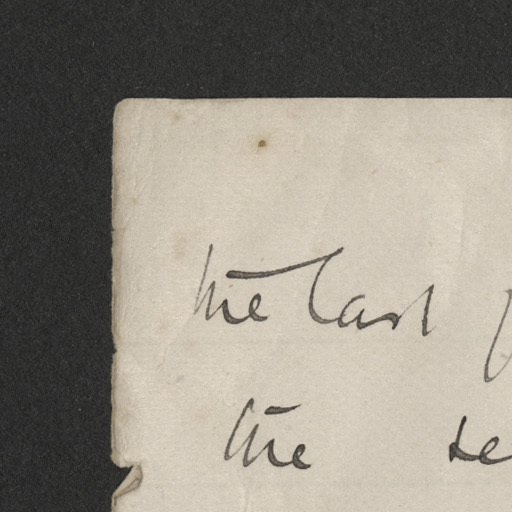 the last
the se